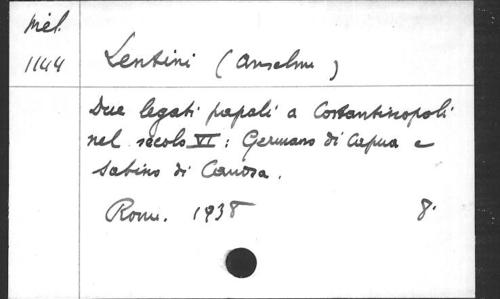 Mél.
1144
Lentini (Anselmo)
Due legati papali a Costantinopoli
nel secolo VI: Germano di Capua e
Sabino di Canosa.
Rome. 1938 8.